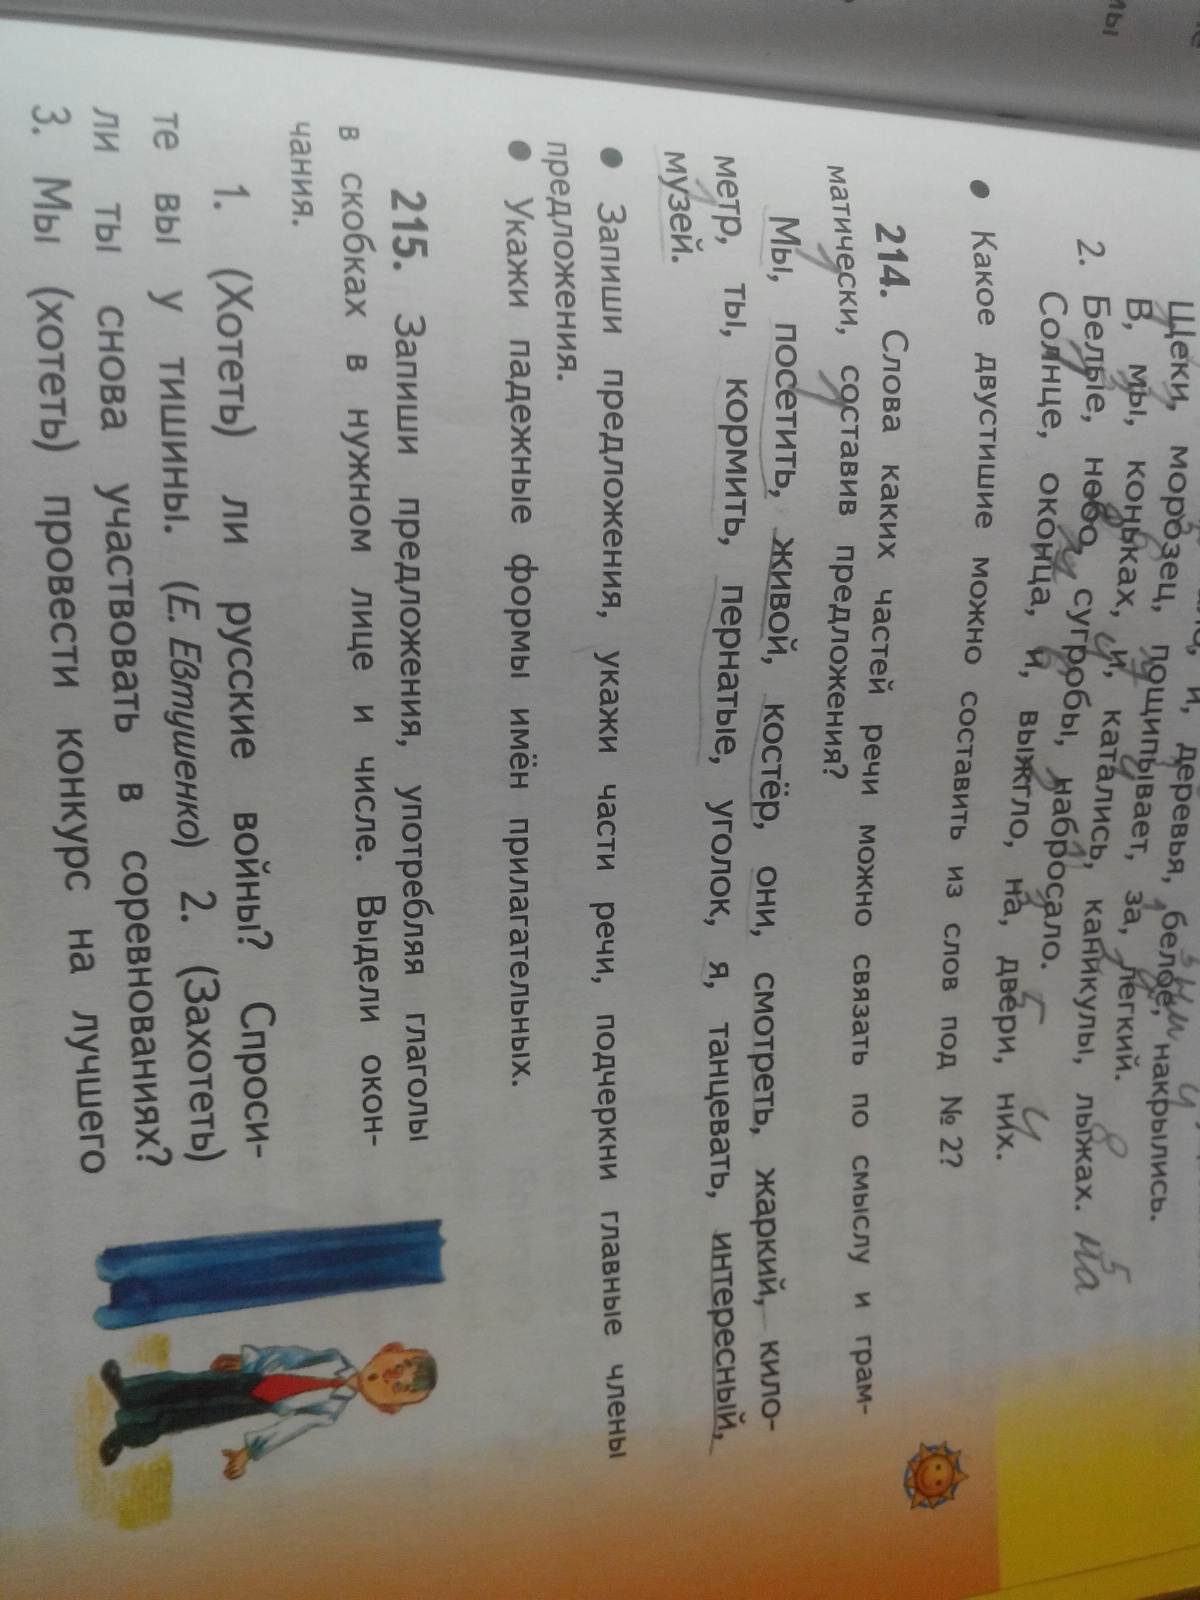 мы
Щеки, морозец, пощипывает, за, легкий.
В, мы, коньках, и, катались, каникулы, лыжах. на
2. Белые, небо, сугробы, набросало.
Солнце, оконца, и, выжгло, на, двери, них.
● Какое двустишие можно составить из слов под № 2?
214. Слова каких частей речи можно связать по смыслу и грам-
матически, составив предложения?
Мы, посетить, живой, костёр, они, смотреть, жаркий, кило-
метр, ты, кормить, пернатые, уголок, я, танцевать, интересный,
музей.
● Запиши предложения, укажи части речи, подчеркни главные члены
предложения.
● Укажи падежные формы имён прилагательных.
215. Запиши предложения, употребляя глаголы
в скобках в нужном лице и числе. Выдели окон-
чания.
1. (Хотеть) ли русские войны? Спроси-
те вы у тишины. (Е. Евтушенко) 2. (Захотеть)
ли ты снова участвовать в соревнованиях?
3. Мы (хотеть) провести конкурс на лучшего